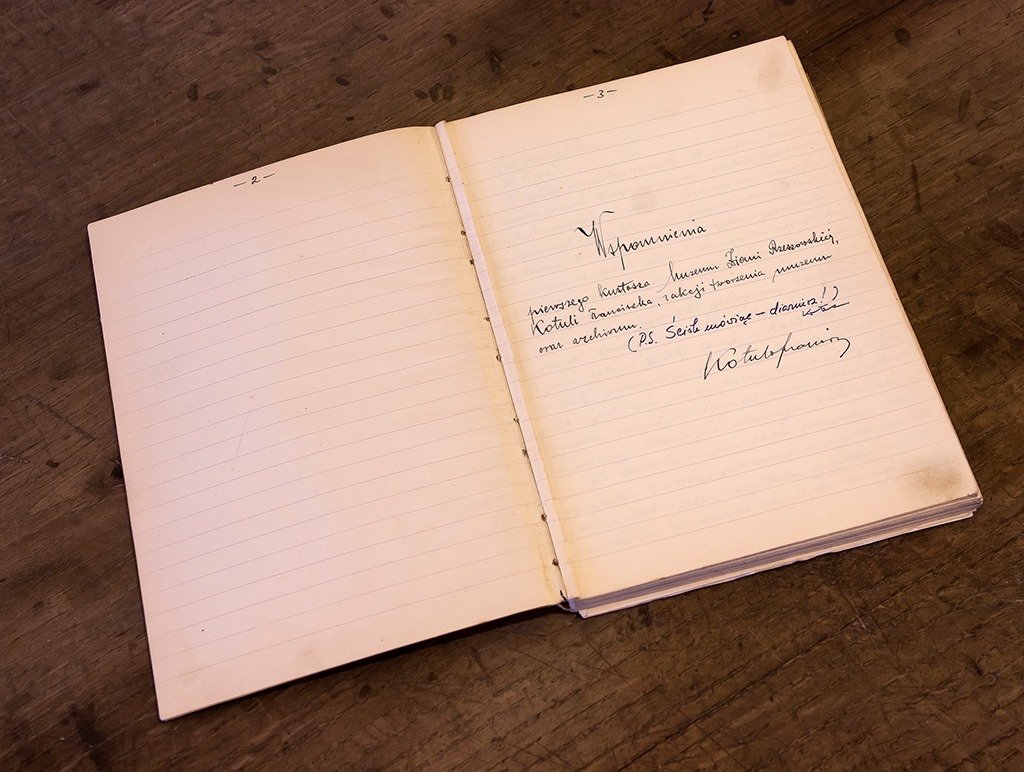 — 2 —
— 3 —
Wspomnienia
pierwszego kustosza Muzeum Ziemi Rzeszowskiej,
Kotuli Franciszka, z akcji tworzenia muzeum
oraz archiwum.
(P.S. Ściśle mówiąc – diariusz!)
Kotula Franciszek